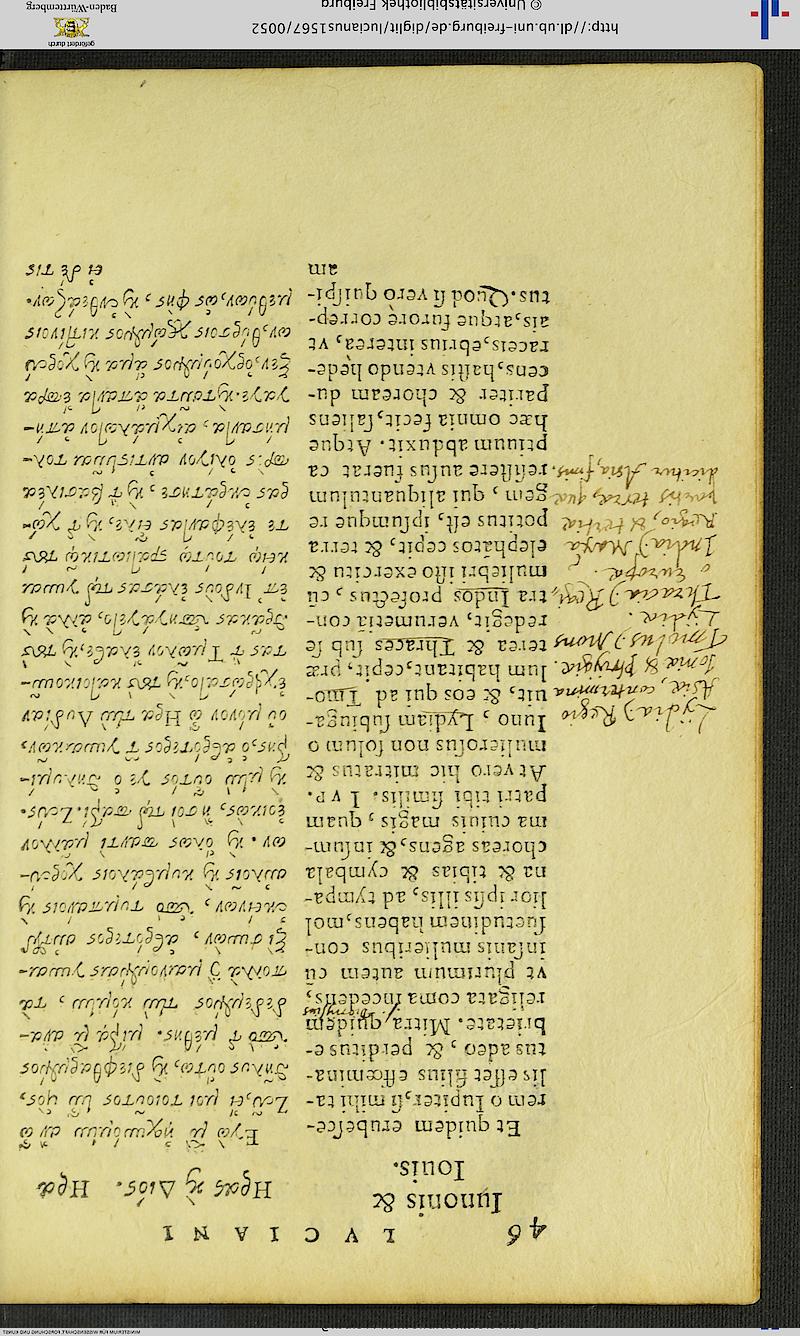 46 LVCIANI
Iunonis &
Iouis.
Et quidem erubesce-
rem o Iupiter, si mihi ta-
lis esset filius effœmina-
tus adeo, & perditus e-
brietate. Mitra quidem
religata coma incedens,
vt plurimum autem cū
insanis mulieribus con-
suetudinem habens, mol
lior ipsis illis, ad tympa-
na & tibias & cymbala
choreas agens, & in sum-
ma cuiuis magis, quam
patri tibi similis. IVP.
At vero hic mitratus &
mulierosus non solum o
Iuno, Lydiam subiuga-
uit, & eos qui ad Tmo-
lum habitant, cepit, præ
terea & Thraces sub se
redegit, verumetiā con-
tra Indos profectus, cū
muliebri isto exercitu &
elephantos cepit, & terra
potitus est, ipsumque re
gem, qui aliquantulum
resistere ausus fuerat, ca
ptiuum abduxit. Atque
hæc omnia fecit, saliens
pariter & choream du-
cens, hastis vtendo hede-
raceis, ebrius interea, vt
ais, atque furore correp-
tus. Quod si vero quispi-
am
Ἥρας καὶ Διός. Ἥρα
Ἐγὼ μὲν ᾐσχυνόμην ἂν ὦ
Ζεῦ, εἴ μοι τοιοῦτος ἦν υἱός,
θῆλυς οὕτω, καὶ διεφθαρμένος
ὑπὸ τῆς μέθης. μίτρᾳ μὲν ἀνα-
δεδεμένος τὴν κόμην, τὰ
πολλὰ δὲ μαινομέναις γυναι-
ξὶ συνών, ἁβρότερος αὐτῶν
ἐκείνων, ὑπὸ τυμπάνοις καὶ
αὐλοῖς καὶ κυμβάλοις χορεύ-
ων. καὶ ὅλως παντὶ μᾶλλον
ἐοικώς, ἢ σοὶ τῷ πατρί. Ζεύς.
Καὶ μὴν οὗτός γε ὁ θηλυμί-
τρης, ὁ ἁβρότερος τῶν γυναικῶν,
οὐ μόνον ὦ Ἥρα τὴν Λυδίαν
ἐχειρώσατο, καὶ τοὺς κατοικοῦν-
τας τὸν Τμῶλον ἔλαβε, καὶ τοὺς
Θρᾷκας ὑπηγάγετο, ἀλλὰ καὶ
ἐπ' Ἰνδοὺς ἐλάσας τῷ γυναι-
κείῳ τούτῳ στρατιωτικῷ, τούς
τε ἐλέφαντας εἷλε, καὶ τῆς χώ-
ρας ἐκράτησε, καὶ τὸν βασιλέα
πρὸς ὀλίγον ἀντιστῆναι τολ-
μήσαντα, αἰχμάλωτον ἀπή-
γαγε. καὶ ταῦτα ἅπαντα ἔπρα-
ξεν, ὀρχούμενος ἅμα καὶ χορεύ-
ων, θύρσοις χρώμενος κιττίνοις
μεθύων, ὡς φής, καὶ ἐνθεάζων.
εἰ δέ τις
Lydia) Regio
Ionia & Phrygia
Tmolus) Mons
Lydiæ.
Europæ.
India)
http://dl.ub.uni-freiburg.de/diglit/lucianus1567/0052
© Universitätsbibliothek Freiburg
gefördert durch
Baden-Württemberg
MINISTERIUM FÜR WISSENSCHAFT, FORSCHUNG UND KUNST